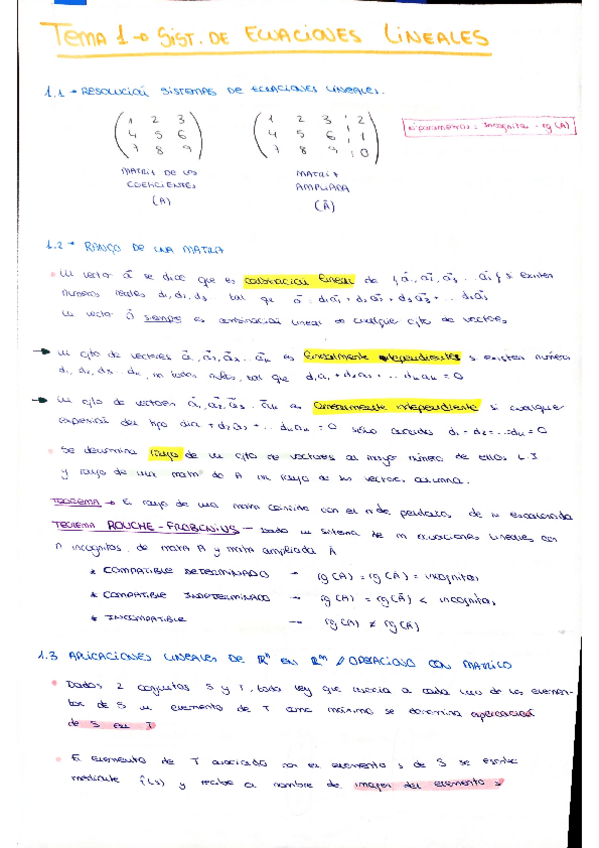 TEMA 1 → SIST. DE ECUACIONES LINEALES
1.1 → RESOLUCIÓN SISTEMAS DE ECUACIONES LINEALES.
1 2 3
4 5 6
7 8 9
1 2 3 ¦ 2
4 5 6 ¦ 1
7 8 9 ¦ 0
nº parámetros = Incognitas - rg (A)
MATRIZ DE LOS
COEFICIENTES
(A)
MATRIZ
AMPLIADA
(Ā)
1.2 → RANGO DE UNA MATRIZ
Un vector a se dice que es combinación lineal de { a1, a2, a3 ... an } si existen
números reales d1, d2, d3 tal que a = d1a1 + d2a2 + d3a3 + ...
un vector 0 siempre es combinación lineal de cualquier cjto de vectores
→ un cjto de vectores a1, a2, a3 ... an es linealmente dependientes si existen números
d1, d2, d3 ... dn, no todos nulos, tal que d1a1 + d2a2 + ... dnan = 0
→ un cjto de vectores a1, a2, a3 ... an es linealmente independiente si cualquier
expresión del tipo d1a1 + d2a2 + ... dnan = 0 sólo cuando d1 = d2 = ... = dn = 0
Se denomina rango de un cjto de vectores al mayor número de ellos
y rango de una matriz de A al rango de sus vectores columna.
TEOREMA → El rango de una matriz coincide con el nº de peldaños de su escalonada
TEOREMA ROUCHE-FROBENIUS — Dado un sistema de m ecuaciones lineales con
n incognitas, de matriz A y matriz ampliada Ā
* COMPATIBLE DETERMINADO → rg (A) = rg (Ā) = incognitas
* COMPATIBLE INDETERMINADO → rg (A) = rg (Ā) < incognitas
* INCOMPATIBLE → rg (A) ≠ rg (Ā)
1.3 APLICACIONES LINEALES DE Rⁿ EN Rᵐ / OPERACIONES CON MATRICES
Dados 2 conjuntos S y T, toda ley que asocia a cada uno de los elemen-
tos de S un elemento de T como máximo se denomina aplicación
de S en T
El elemento de T asociado con el elemento s de S se escribe
mediante f(s) y recibe el nombre de imagen del elemento s